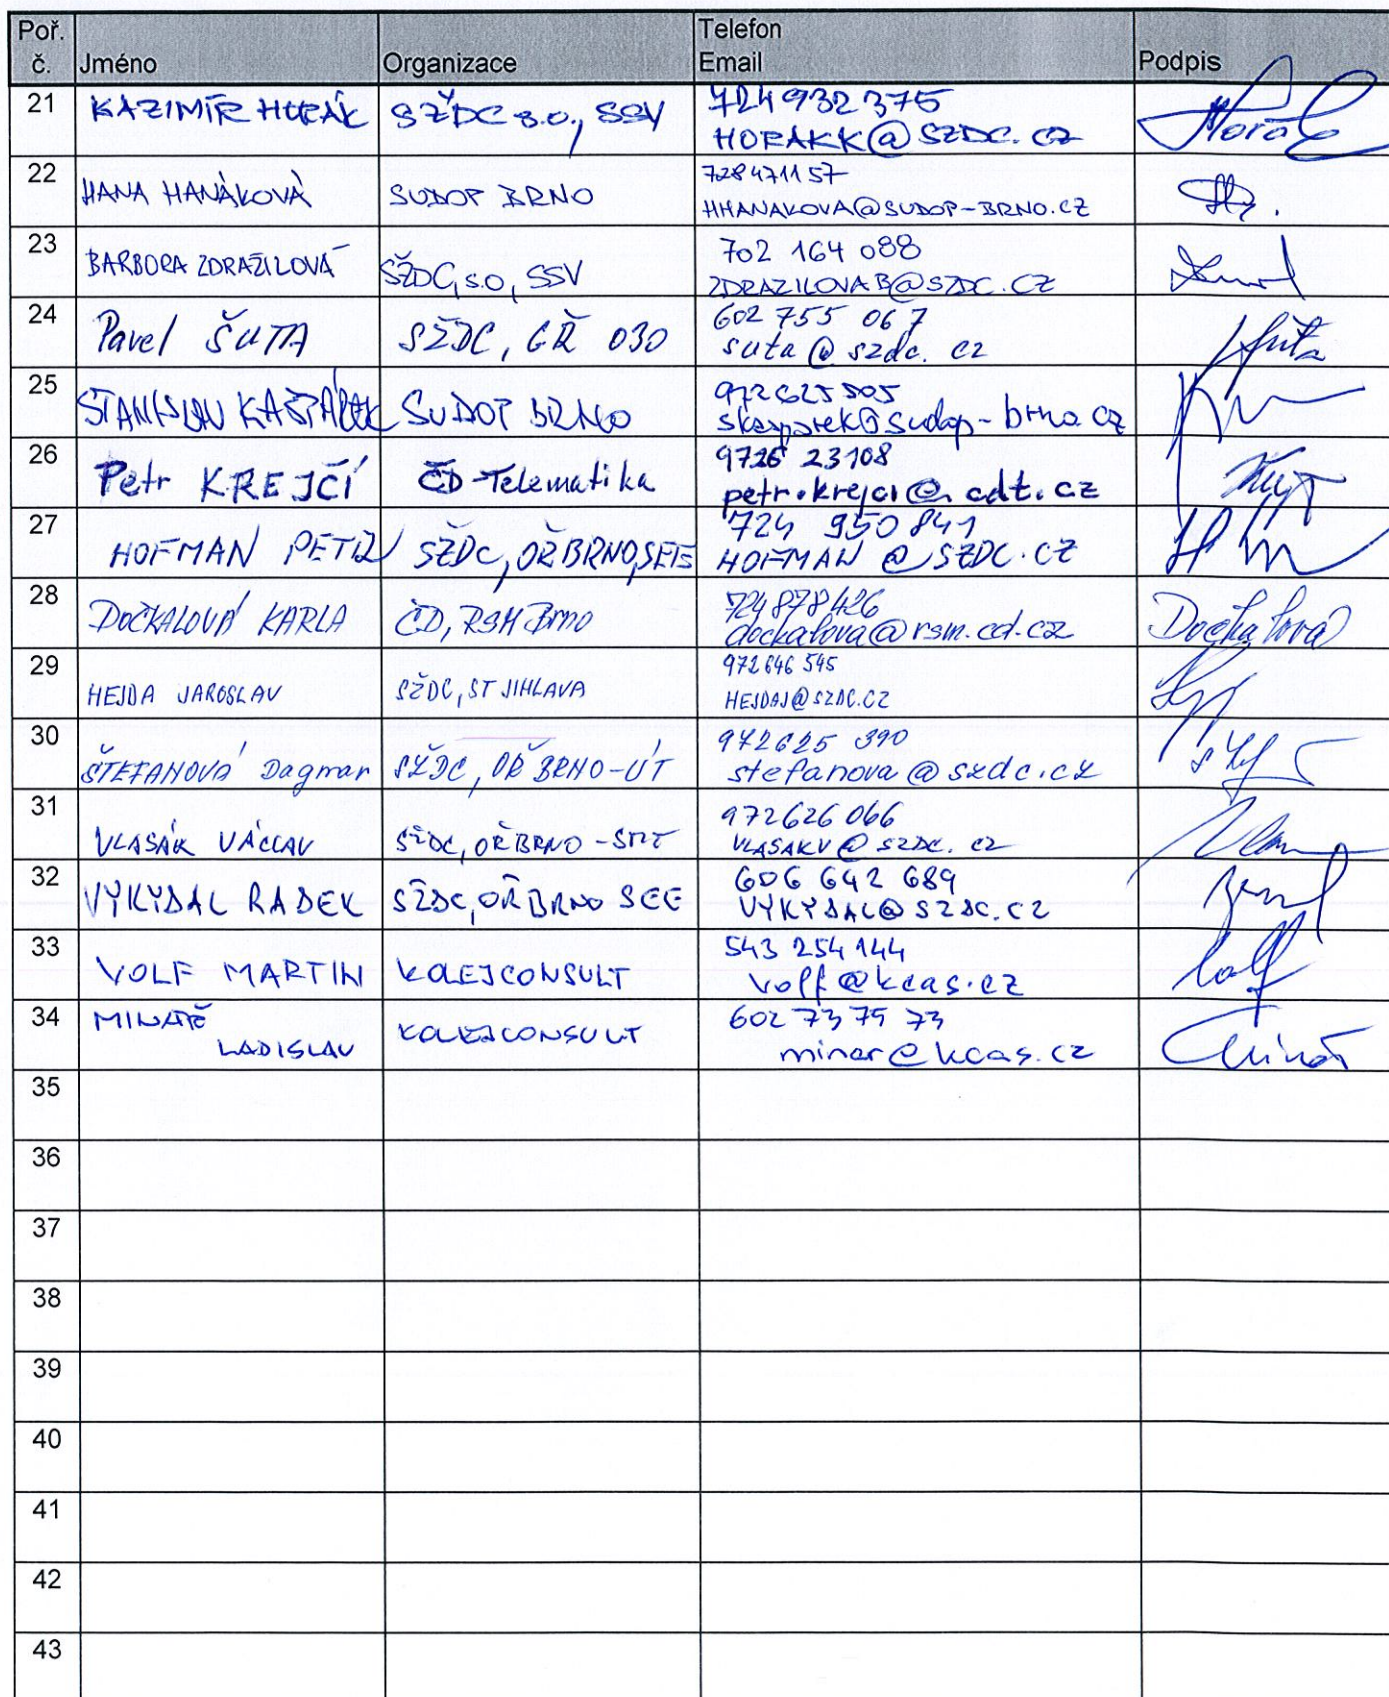 Poř. č. Jméno Organizace Telefon Email Podpis
21 KAZIMÍR HORÁK SŽDC s.o., SSV 724 932 375
HORAKK@SZDC.CZ
22 HANA HANÁKOVÁ SUDOP BRNO 728471157
HHANAKOVA@SUDOP-BRNO.CZ
23 BARBORA ZDRAŽILOVÁ SŽDC, s.o, SSV 702 164 088
ZDRAZILOVAB@SZDC.CZ
24 Pavel ŠUTA SŽDC, GŘ 030 602 755 067
suta@szdc.cz
25 STANISLAV KAŠPÁREK SUDOP BRNO 972625505
skasparek@sudop-brno.cz
26 Petr KREJČÍ ČD-Telematika 9726 23108
petr.krejci@cdt.cz
27 HOFMAN PETR SŽDC, OŘ BRNO, 724 950 841
HOFMAN@SZDC.CZ
28 DOČKALOVÁ KARLA ČD, RSM Brno 724 878 426 Dočkalová
dockalova@rsm.cd.cz
29 HEJDA JAROSLAV SŽDC, ST JIHLAVA 972 646 545
HEJDAJ@SZDC.CZ
30 ŠTEFANOVÁ Dagmar SŽDC, OŘ BRNO-ÚT 972625 390
stefanova@szdc.cz
31 VLASÁK VÁCLAV SŽDC, OŘ BRNO - 972626 066
VLASAKV@SZDC.CZ
32 VYKYDAL RADEK SŽDC, OŘ BRNO SEE 606 642 689
VYKYDAL@SZDC.CZ
33 VOLF MARTIN KOLEJCONSULT 543 254 144
volf@kcas.cz
34 MINÁŘ LADISLAV KOLEJCONSULT 602 73 75 73
minar@kcas.cz
35
36
37
38
39
40
41
42
43